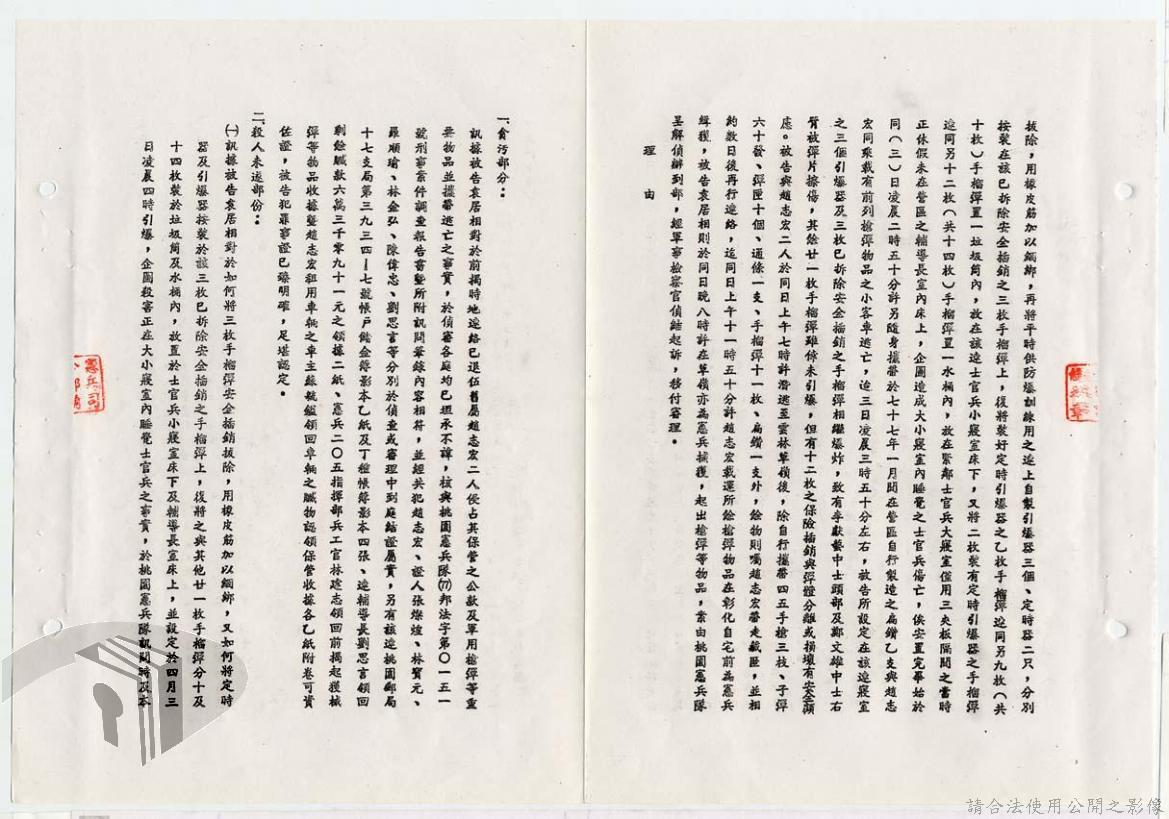 拔除，用橡皮筋加以綑綁，再將平時供防爆訓練用之連上自製引爆器三個、定時器二只，分別
按裝在該已拆除安全插銷之三枚手榴彈上，復將裝好定時引爆器之乙枚手榴彈連同另九枚（共
十枚）手榴彈置一垃圾筒內，放在該連士官兵小寢室床下，又將二枚裝有定時引爆器之手榴彈
連同另十二枚（共十四枚）手榴彈置一水桶內，放在緊鄰士官兵大寢室僅用三夾板隔間之當時
正休假未在營區之輔導長室內床上，企圖造成大小寢室內睡覺之士官兵傷亡，俟安置完畢始於
同（三）日凌晨二時五十分許另隨身攜帶於七十七年一月間在營區自行製造之扁鑽乙支與趙志
宏同乘載有前列槍彈物品之小客車逃亡，迨三日凌晨三時五十分左右，被告所設定在該連寢室
之三個引爆器及三枚已拆除安全插銷之手榴彈相繼爆炸，致有李獻藝中士頭部及鄭文雄中士右
臂被彈片擦傷，其餘廿一枚手榴彈雖倖未引爆，但有十二枚之保險插銷與彈體分離或損壞有安全顧
慮。被告與趙志宏二人於同日上午七時許潛逃至雲林草嶺後，除自行攜帶四五手槍三枝、子彈
六十發、彈匣十個、通條一支、手榴彈十一枚、扁鑽一支外，餘物則囑趙志宏帶走藏匿，並相
約數日後再行連絡，迄同日上午十一時五十分許趙志宏載運所餘槍彈物品在彰化自宅前為憲兵
緝獲，被告袁居相則於同日晚八時許在草嶺亦為憲兵捕獲，起出槍彈等物品，案由桃園憲兵隊
呈解偵辦到部，經軍事檢察官偵結起訴，移付審理。
理由
一、貪污部分：
訊據被告袁居相對於前揭時地連絡已退伍舊屬趙志宏二人侵占其保管之公款及軍用槍彈等重
要物品並攜帶逃亡之事實，於偵審各庭均已坦承不諱，核與桃園憲兵隊(77)邦法字第〇一五一
號刑事案件調查報告書暨所附訊問筆錄內容相符，並經共犯趙志宏、證人張燦煌、林寶元、
羅順瑜、林金弘、陳偉忠、劉思言等分別於偵查或審理中到庭結證屬實，另有該連桃園郵局
十七支局第三九三四－七號帳戶儲金簿影本乙紙及丁種帳簿影本四張、連輔導長劉思言領回
剩餘贓款六萬三千零九十一元之領據二紙、憲兵二〇五指揮部兵工官林建志領回前揭起獲械
彈等物品收據暨趙志宏租用車輛之車主蘇毓鑑領回車輛之贓物認領保管收據各乙紙附卷可資
佐證，被告犯罪事證已臻明確，足堪認定。
二、殺人未遂部份：
㈠訊據被告袁居相對於如何將三枚手榴彈安全插銷拔除，用橡皮筋加以綑綁，又如何將定時
器及引爆器按裝於該三枚已拆除安全插銷之手榴彈上，復將之與其他廿一枚手榴彈分十及
十四枚裝於垃圾筒及水桶內，放置於士官兵小寢室床下及輔導長室床上，並設定於四月三
日凌晨四時引爆，企圖殺害正在大小寢室內睡覺士官兵之事實，於桃園憲兵隊訊問時及本
憲兵司
請合法使用公開之影像